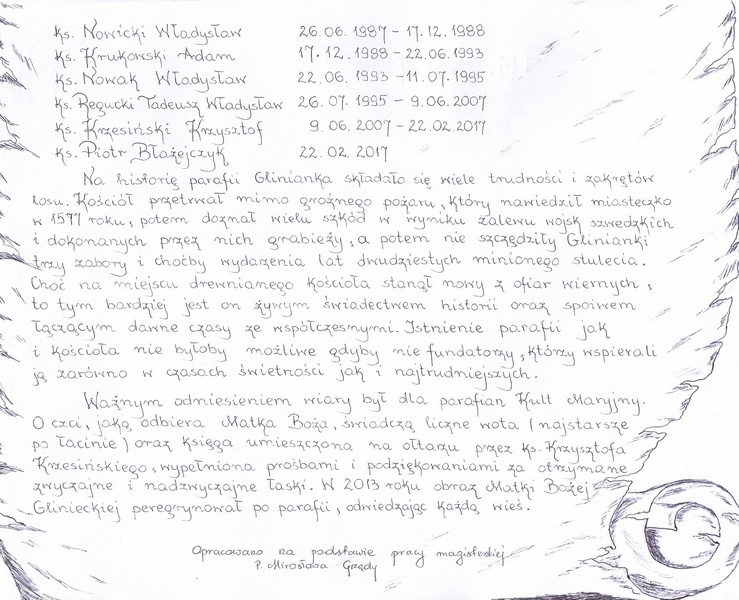 ks. Nowicki Władysław 26.06.1987 - 17.12.1988
ks. Krukowski Adam 17.12.1988 - 22.06.1993
ks. Nowak Władysław 22.06.1993 - 11.07.1995
ks. Regucki Tadeusz Władysław 26.07.1995 - 9.06.2007
ks. Krzesiński Krzysztof 9.06.2007 - 22.02.2017
ks. Piotr Błażejczyk 22.02.2017
Na historię parafii Glinianka składało się wiele trudności i zakrętów
losu. Kościół przetrwał mimo groźnego pożaru, który nawiedził miasteczko
w 1577 roku, potem doznał wielu szkód w wyniku zalewu wojsk szwedzkich
i dokonanych przez nich grabieży, a potem nie szczędziły Glinianki
trzy zabory i choćby wydarzenia lat dwudziestych minionego stulecia.
Choć na miejscu drewnianego kościoła stanął nowy z ofiar wiernych,
to tym bardziej jest on żywym świadectwem historii oraz spoiwem
łączącym dawne czasy ze współczesnymi. Istnienie parafii jak
i kościoła nie byłoby możliwe gdyby nie fundatorzy, którzy wspierali
ją zarówno w czasach świetności jak i najtrudniejszych.
Ważnym odniesieniem wiary był dla parafian Kult Maryjny.
O czci, jaką odbiera Matka Boża, świadczą liczne wota (najstarsze
po łacinie) oraz księga umieszczona na ołtarzu przez ks. Krzysztofa
Krzesińskiego, wypełniona prośbami i podziękowaniami za otrzymane
zwyczajne i nadzwyczajne łaski. W 2013 roku obraz Matki Bożej
Glinieckiej peregrynował po parafii, odwiedzając każdą wieś.
Opracowano na podstawie pracy magisterskiej
P. Mirosława Grzędy